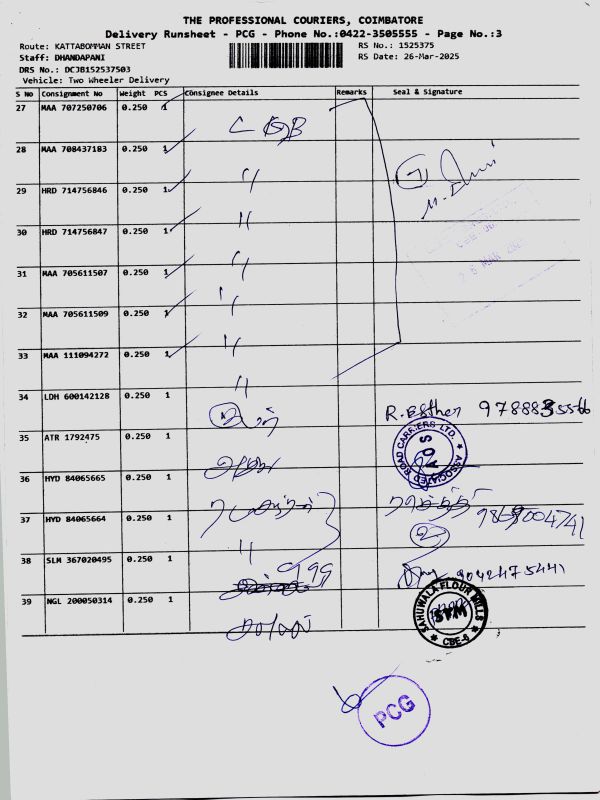 THE PROFESSIONAL COURIERS, COIMBATORE
Delivery Runsheet - PCG - Phone No.:0422-3505555 - Page No.:3
Route: KATTABOMMAN STREET
RS No.: 1525375
Staff: DHANDAPANI
RS Date: 26-Mar-2025
DRS No.: DCJB152537503
Vehicle: Two Wheeler Delivery
S No Consignment No Weight PCS Consignee Details Remarks Seal & Signature
27 MAA 707250706 0.250 1
28 MAA 708437183 0.250 1 "
29 HRD 714756846 0.250 1 "
30 HRD 714756847 0.250 1 "
31 MAA 705611507 0.250 1 "
32 MAA 705611509 0.250 1 "
33 MAA 111094272 0.250 1 "
34 LDH 600142128 0.250 1 R. Esther
35 ATR 1792475 0.250 1
ASSOCIATED ROAD CARRIERS LTD.
36 HYD 84065665 0.250 1
37 HYD 84065664 0.250 1 "
38 SLM 367020495 0.250 1 999 9042475441
39 NGL 200050314 0.250 1
SAHUWALA FLOUR MILLS
SFM
CBE-6
PCG